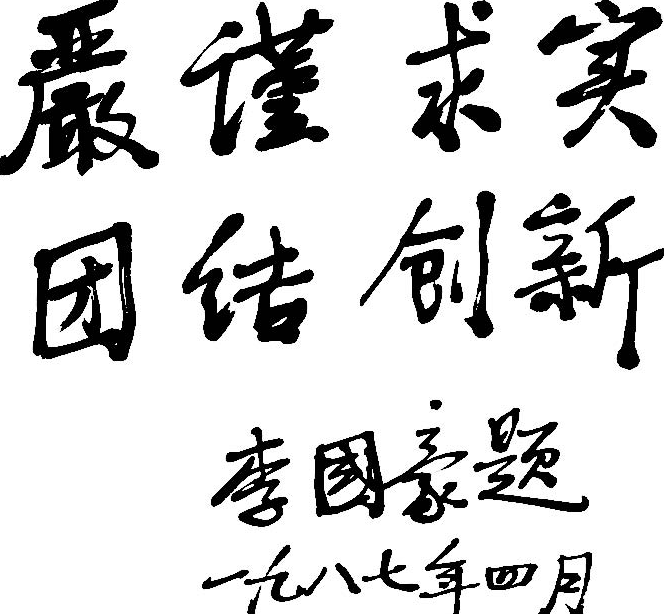 嚴谨 求实
团结 创新
李國豪题
一九八七年四月